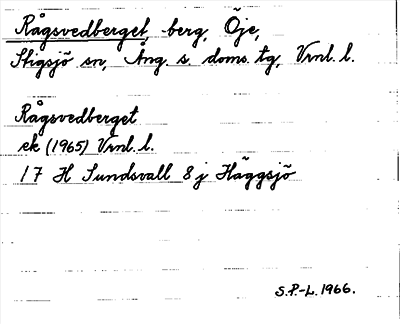 Rågsvedberget, berg, Öje,
Stigsjö sn, Ång. s. doms. tg, Vrnl. l.
Rågsvedberget
ek (1965) Vrnl. l.
17 H Sundsvall 8 j Häggsjö
S.P.-L. 1966.